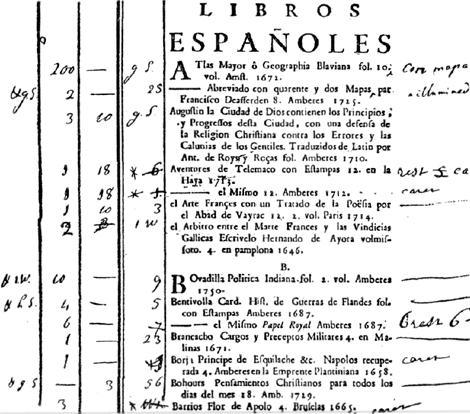 LIBROS
ESPAÑOLES
200 — g S. ATlas Mayor ô Geographia Blaviana fol. 10. Con mapa
vol. Amst. 1672. illumined
2 — 25 —— Abreviado con quarente y dos Mapas, par
Francisco Deafferden 8. Amberes 1725.
3 10 g S. Augustin la Ciudad de Dios contienen los Principios,
y Progressos desta Ciudad, con una defensa de
la Religion Christiana contra los Errores y las
Calunias de los Gentiles. Traduzidos de Latin por
Ant. de Roys y Roças fol. Amberes 1710.
18 * 6 Aventores de Telemaco con Estampas 12. en la
Haya
18 * —— el Mismo 12. Amberes 1712. carer
10 3 el Arte Françes con un Tratado de la Poësia por
el Abad de Vayrac 12. 2. vol. Paris 1714.
2 el Arbitro entre el Marte Frances y las Vindicias
Gallicas Escrivelo Hernando de Ayora volmis-
soto. 4. en pamplona 1646.
B.
10 — 9 BOvadilla Politica Indiana fol. 2. vol. Amberes
1750.
4 — 5 Bentivolla Card. Hist. de Guerras de Flandes fol.
con Estampas Amberes 1687.
6 — 7 —— el Mismo Papel Royal Amberes 1687.
1 — 23 Brancacho Cargos y Preceptos Militares 4. en Ma-
linas 1671.
1 — Borja Principe de Esquilache &c. Napolos recupe- carer
rada 4. Amberes en la Emprente Plantiniana 1658.
3 56 Bohours Pensamientos Christianos para todos los
dias del mes 18. Amb. 1729.
3 * Barrios Flor de Apolo 4. Bruselas 1665. carer